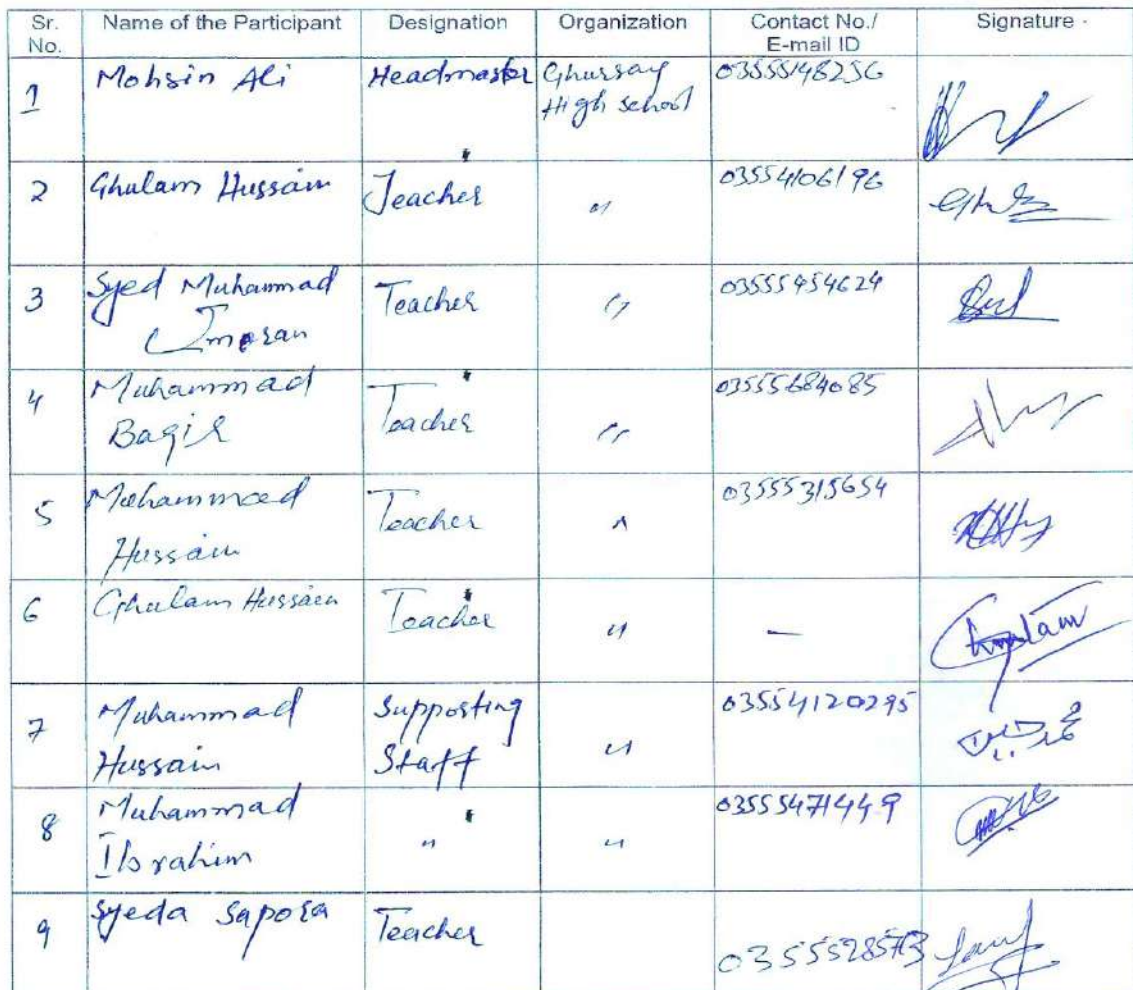 Sr. No. Name of the Participant Designation Organization Contact No./ E-mail ID Signature
1 Mohsin Ali Headmaster Ghursay High school 03555148256
2 Ghulam Hussain Teacher " 03554106196
3 Syed Muhammad Imran Teacher " 03555454624
4 Muhammad Baqir Teacher " 03555684085
5 Muhammad Hussain Teacher " 03555315654
6 Ghulam Hussain Teacher " —
7 Muhammad Hussain Supporting Staff " 03554120295 محمد حسین
8 Muhammad Ibrahim " " 03555471449
9 Syeda Teacher